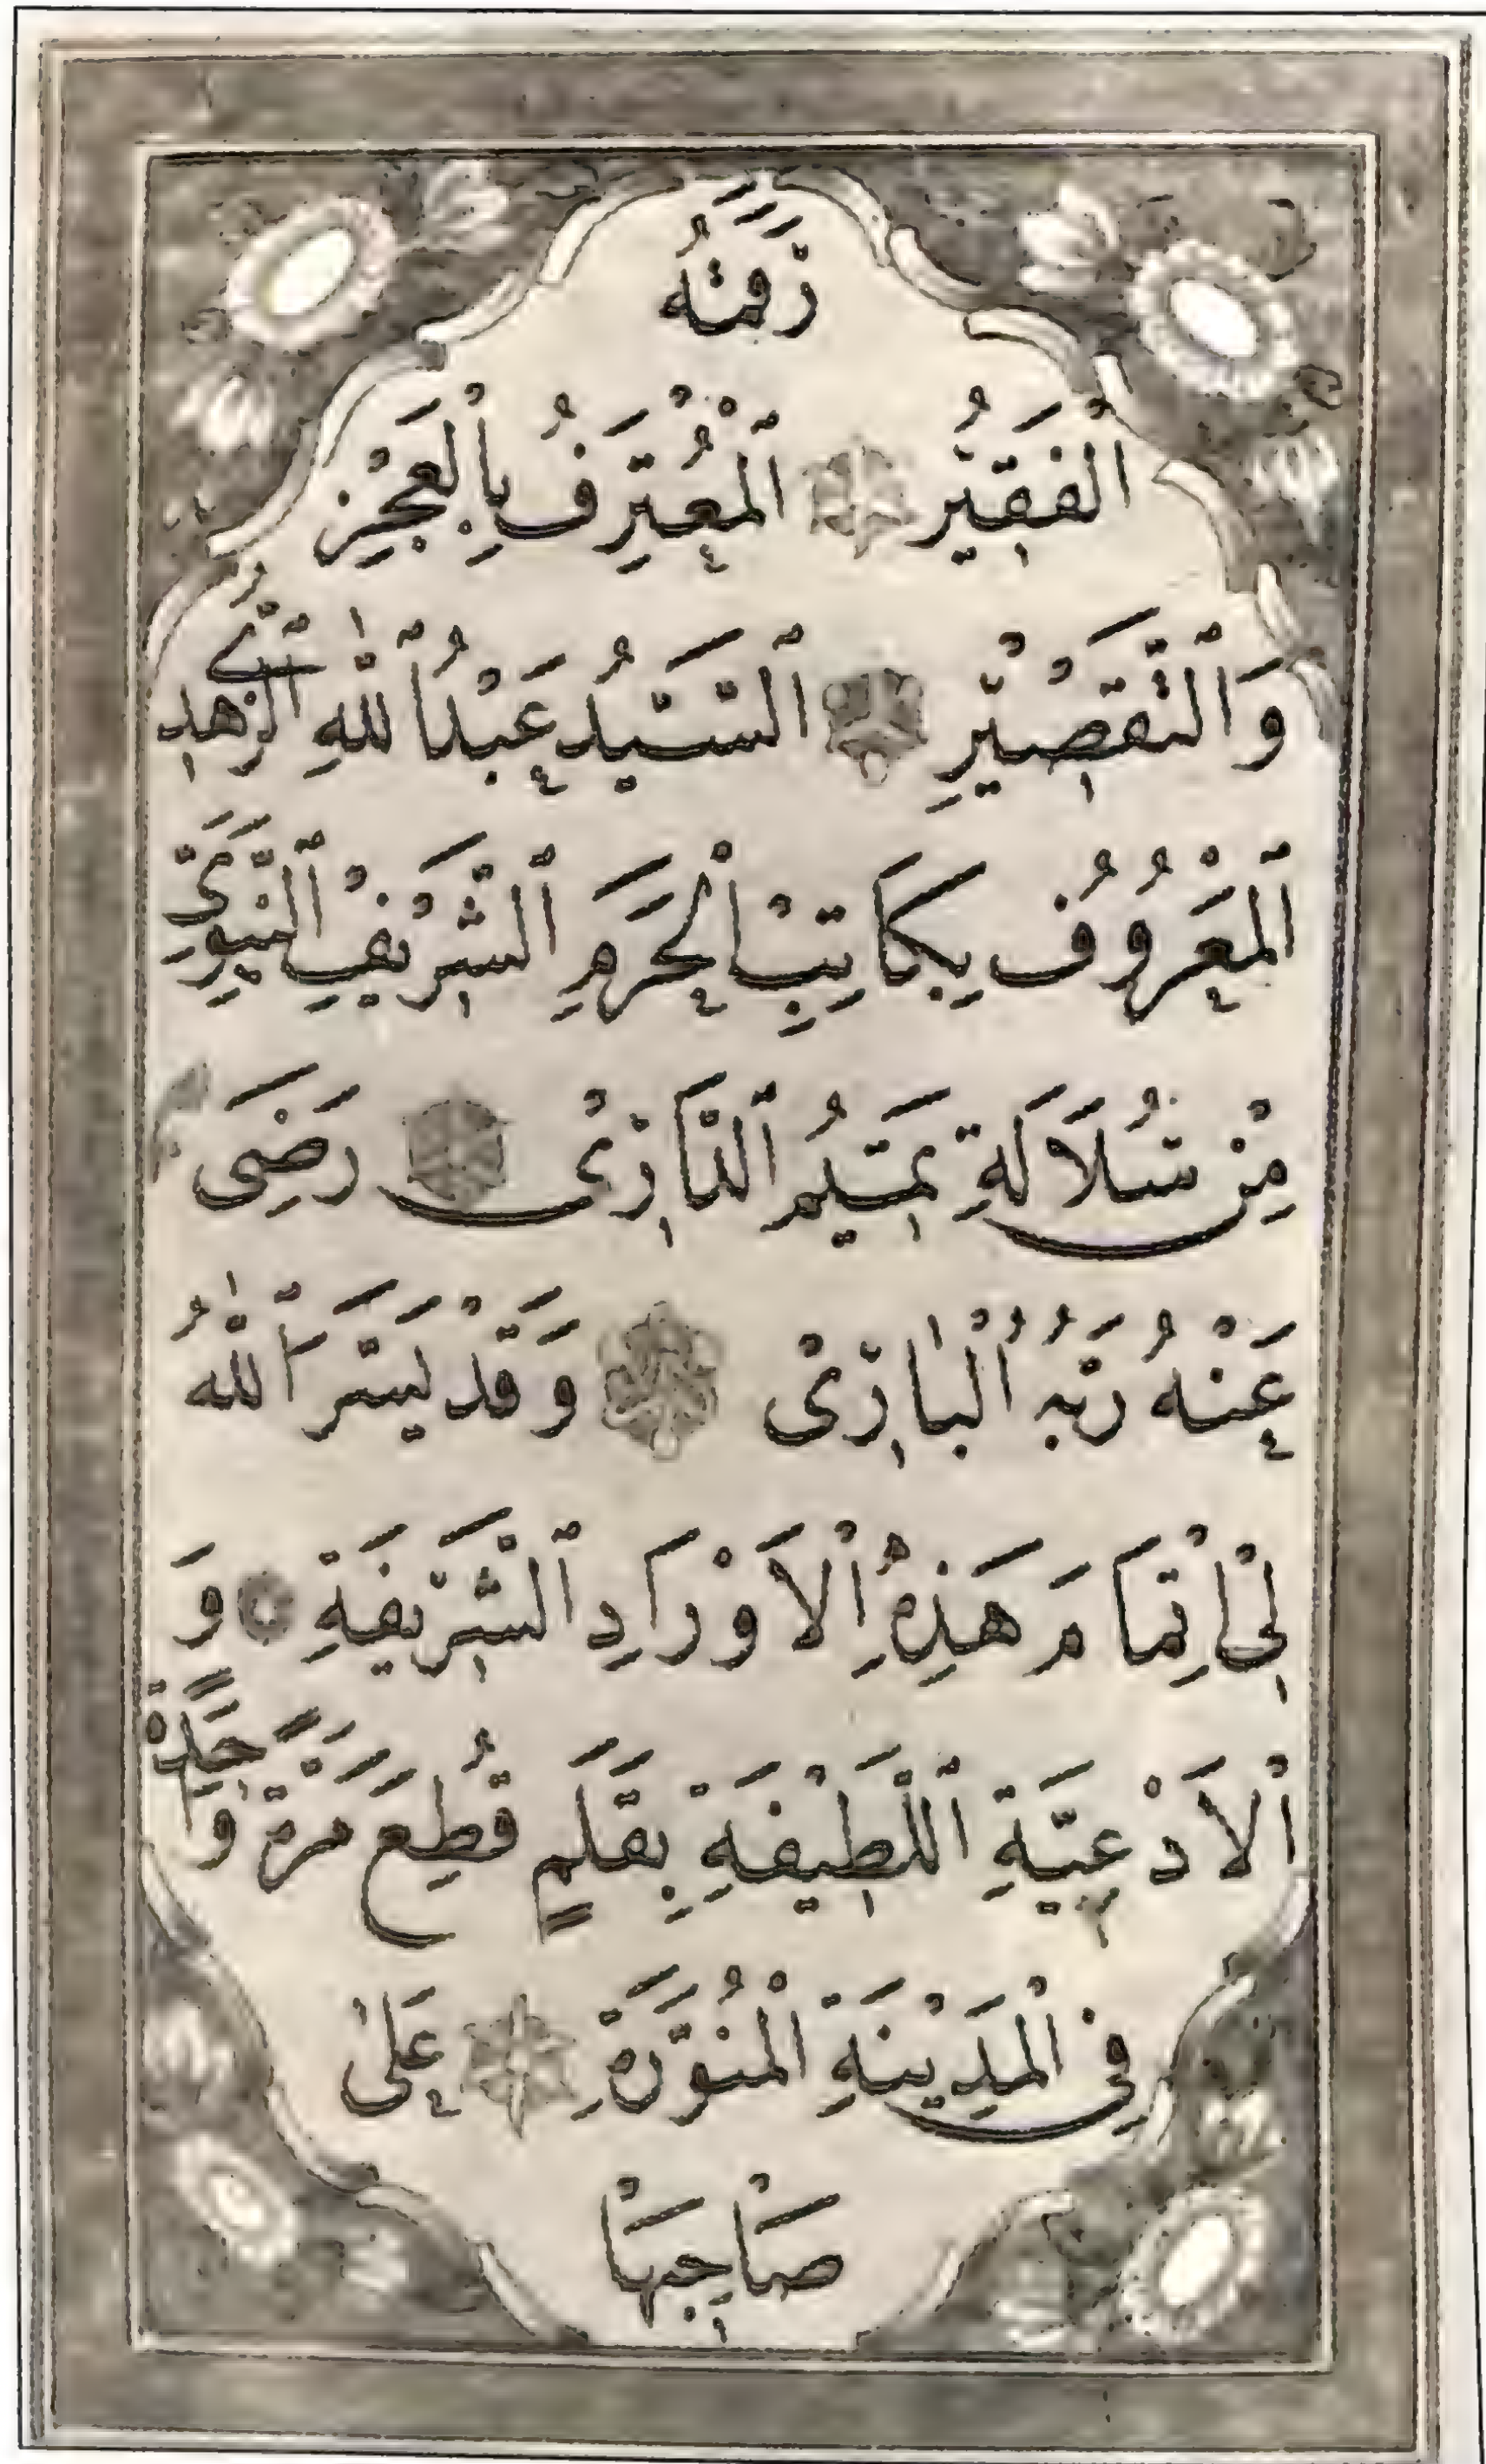 رَقَمَهُ
اَلْفَقِيْرُ اَلْمُعْتَرِفُ بِاْلعَجْزِ
وَالتَّقْصِيْرِ اَلسَّيِّدُ عَبْدُ اللهِ الزُّهْدِيُّ
اَلْمَعْرُوُفُ بِكَاتِبِ الْحَرَمِ الشَّرِيْفِ النَّبَوِيِّ
مِنْ سُلَالَةِ تَمِيْمُ الدَّارِيْ رَضِىَ
عَنْهُ رَبُّهُ الْبَارِىْ وَقَدْ يَسَّرَ اللهُ
لِيْ اِتْمَامَ هَذِهِ اْلاَوْرَادِ الشَّرِيْفَةِ وَ
اْلاَدْعِيَّةِ اللَّطِيْفَةِ بِقَلَمٍ قُطِعَ مَرَّةً وَاحِدَةً
فِى الْمَدِيْنَةِ الْمُنَوَّرَةِ عَلىٰ
صَاحِبِهَا